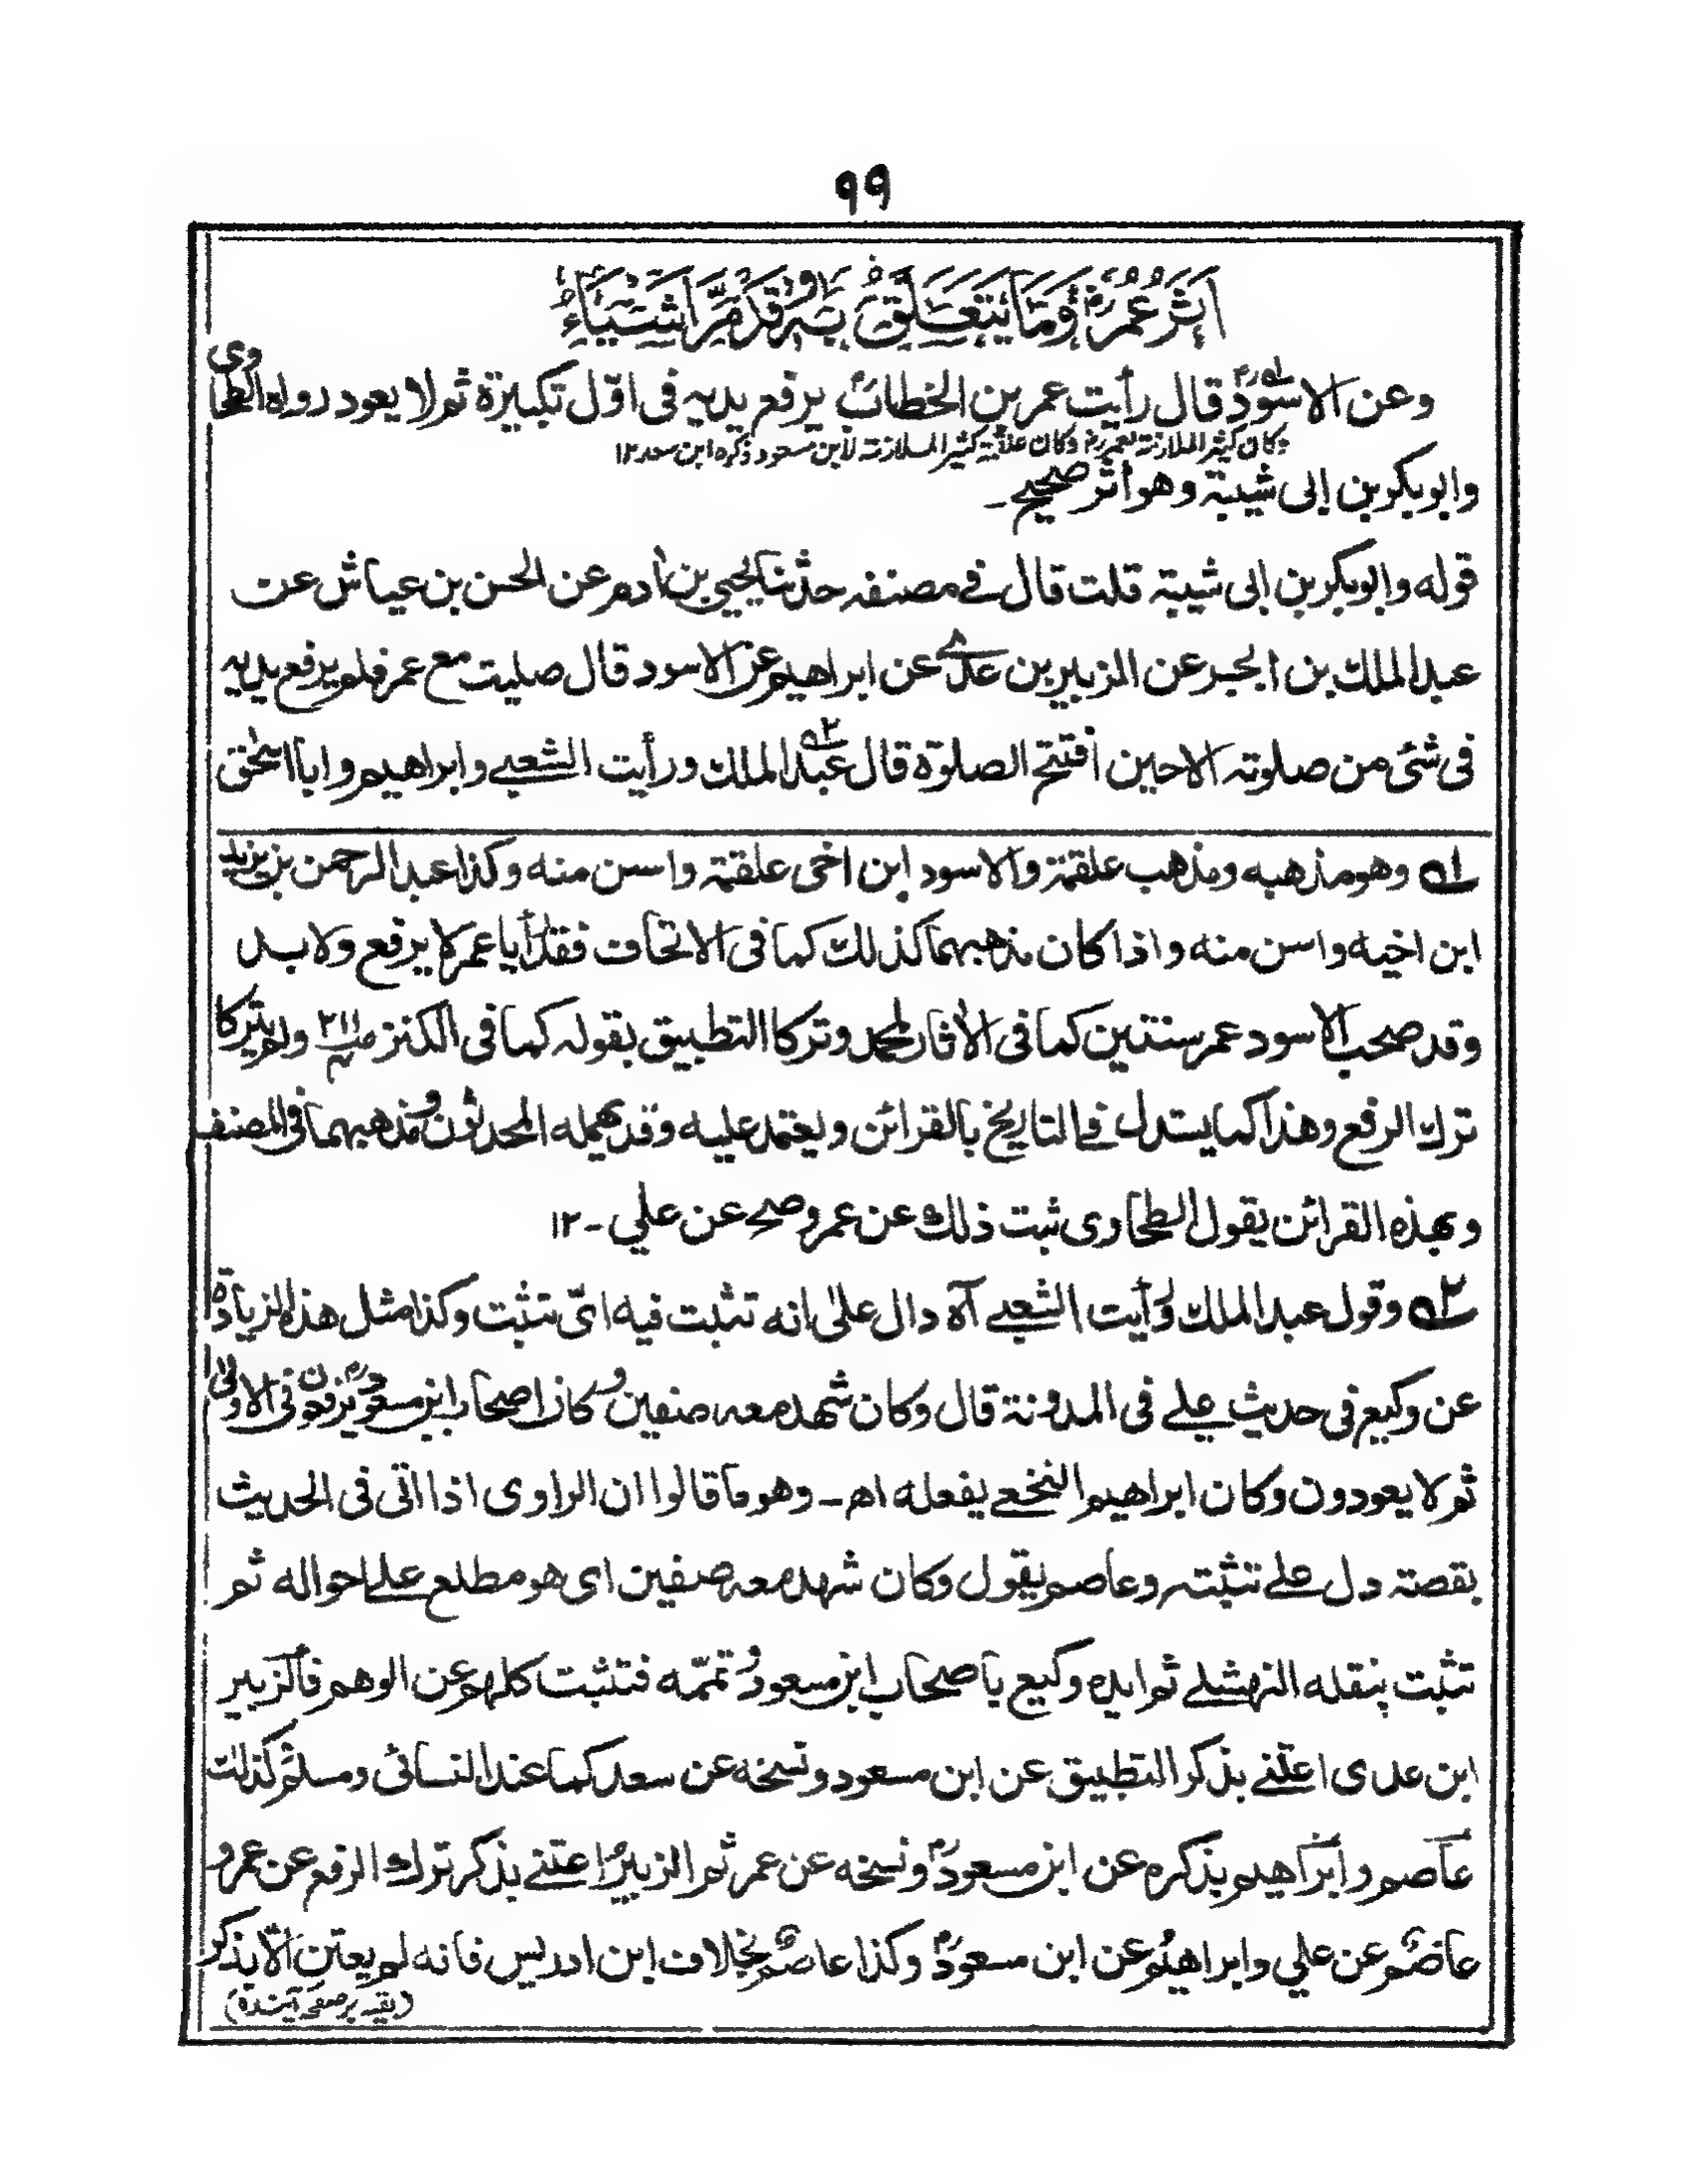 ٩٩
اَثَرُ عُمَرَ رض وَمَا يَتَعَلَّقُ بِهٖ وَقَدْ مَرَّ اَشْيَاءُ
وعن الاسود قال رأيت عمر بن الخطاب يرفع يديه فى اوّل تكبيرة ثم لا يعود رواه الطحاوى
وكان كثير الملازمة لعمر رض وكان علقمة كثير الملازمة لابن مسعود ذكره ابن سعد ١٢
وابوبكر بن ابى شيبة وهو أثر صحيح ـ
قوله وابوبكر بن ابى شيبة قلت قال فے مصنفه حدثنا يحيى بن اٰدم عن الحسن بن عياش عن
عبد الملك بن ابجر عن الزبير بن عدى عن ابراهيم عن الاسود قال صليت مع عمر فلم يرفع يديه
فى شئ من صلوته الاحين افتتح الصلوة قال عبد الملك ورأيت الشعبے وابراهيم وابا اسحٰق
١ـه وهو مذهبه ومذهب علقمة والاسود ابن اخى علقمة واسن منه وكذا عبد الرحمن بن يزيد
ابن اخيه واسن منه واذا كان مذهبهما كذلك كما فى الاتحاف فقد رأيا عمر لا يرفع ولا بد
وقد صحب الاسود عمر سنتين كما فى الاٰثار لمحمد وتركا التطبيق بقوله كما فى الكنز ص٢١١ ولم يتركا
ترك الرفع وهذا كما يستدل فے التاريخ بالقرائن ويعتمد عليه وقد يهمله المحدثون ومذهبهما فى المصنف
وبهذه القرائن يقول الطحاوى ثبت ذلك عن عمر وصح عن علي ـ ١٢
٢ـه وقول عبد الملك ورأيت الشعبے آه دال علىٰ انه تثبت فيه اىّ تثبت وكذا مثل هذه الزيادة
عن وكيع فى حديث علے فى المدونة قال وكان شهد معه صفين وكان اصحاب ابن مسعود رض يرفعون فى الاولىٰ
ثم لا يعودون وكان ابراهيم النخعے يفعله اه ـ وهو ما قالوا ان الراوى اذا اتى فى الحديث
بقصة دل علے تثبته وعاصم يقول وكان شهد معه صفين اى هو مطلع علے احواله ثم
تثبت بنقله النهشلے ثم ايده وكيع باصحاب ابن مسعود رض تممّه فتثبت كلهم عن الوهم فالزبير
ابن عدى اعتنے بذكر التطبيق عن ابن مسعود ونسخه عن سعد كما عند النسائى ومسلم كذلك
عاصم وابراهيم بذكره عن ابن مسعود رض ونسخه عن عمر ثم الزبير اعتنے بذكر ترك الرفع عن عمر و
عاصم عن علي وابراهيم عن ابن مسعود رض وكذا عاصم بخلاف ابن ادريس فانه لم يعتن الّا بذكر
(بقيه بر صفحه آينده)